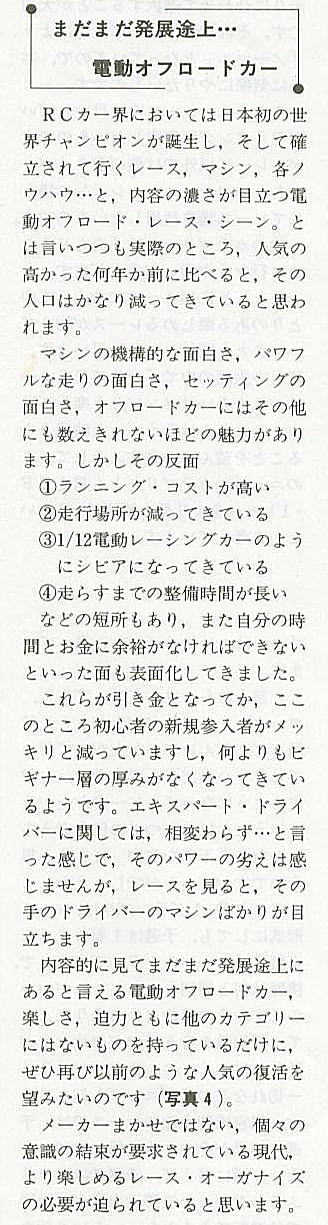 まだまだ発展途上…
電動オフロードカー
RCカー界においては日本初の世
界チャンピオンが誕生し，そして確
立されて行くレース，マシン，各ノ
ウハウ…と，内容の濃さが目立つ電
動オフロード・レース・シーン。と
は言いつつも実際のところ，人気の
高かった何年か前に比べると，その
人口はかなり減ってきていると思わ
れます。
マシンの機構的な面白さ，パワフ
ルな走りの面白さ，セッティングの
面白さ，オフロードカーにはその他
にも数えきれないほどの魅力があり
ます。しかしその反面
①ランニング・コストが高い
②走行場所が減ってきている
③1/12電動レーシングカーのよう
にシビアになってきている
④走らすまでの整備時間が長い
などの短所もあり，また自分の時
間とお金に余裕がなければできない
といった面も表面化してきました。
これらが引き金となってか，ここ
のところ初心者の新規参入者がメッ
キリと減っていますし，何よりもビ
ギナー層の厚みがなくなってきてい
るようです。エキスパート・ドライ
バーに関しては，相変わらず…と言
った感じで，そのパワーの劣えは感
じませんが，レースを見ると，その
手のドライバーのマシンばかりが目
立ちます。
内容的に見てまだまだ発展途上に
あると言える電動オフロードカー，
楽しさ，迫力ともに他のカテゴリー
にはないものを持っているだけに，
ぜひ再び以前のような人気の復活を
望みたいのです（写真4）。
メーカーまかせではない，個々の
意識の結束が要求されている現代，
より楽しめるレース・オーガナイズ
の必要が迫られていると思います。